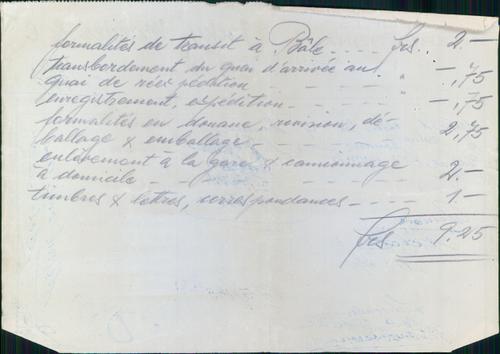 formalités de transit à Bâle - - - - frs.. 2.-
transbordement du quai d'arrivée au
quai de réexpédition - - - - - " -,75
enregistrement, expédition - - - - " -,75
formalités en douane, revision, dé-
ballage & emballage - - - - - 2,75
enlèvement à la gare & camionnage
à domicile - - - - - - 2.-
timbres & lettres, correspondances - - - - 1.-
frs 9.25